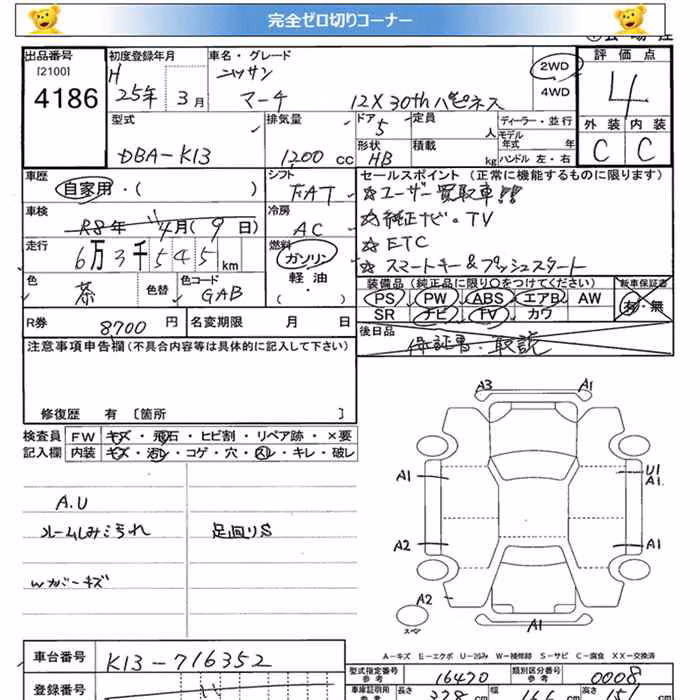 完全ゼロ切りコーナー
出品番号
[2100]
4186
初度登録年月
H
25年 3月
車名・グレード
ニッサン
マーチ 12X 30th ハピネス
2WD
4WD
評価点
4
外装 内装
C C
型式
DBA-K13
排気量
1200 cc
ドア
5
形状
HB
定員
人
積載
kg
ディーラー・並行
モデル
年式 年
ハンドル 左・右
車歴
自家用・( )
車検
R8年 4月(9日)
走行
6万3千545km
色
茶
色替
色コード
GAB
シフト
FAT
冷房
AC
燃料
ガソリン
軽油
( ・ )
セールスポイント (正常に機能するものに限ります)
☆ユーザー買取車!!
☆純正ナビ・TV
☆ETC
☆スマートキー&プッシュスタート
装備品 (純正品に限り○をつけてください)
PS PW ABS エアB AW
SR ナビ TV カワ
新車保証書
有・無
R券 8700円
名変期限 月 日
後日品
保証書・取説
注意事項申告欄(不具合内容等は具体的に記入して下さい)
修復歴 有 [箇所 ]
検査員
記入欄
FW キズ・飛石・ヒビ割・リペア跡・×要
内装 キズ・汚レ・コゲ・穴・スレ・キレ・破レ
A.U
ルームしみこうれ
足廻りS
Wカバーキズ
A3 A1
A1
U1
A1
A2
A1
A2
スペア
A1
A-キズ E-エクボ U-凹み W-補修跡 S-サビ C-腐食 XX-交換済
車台番号
K13-716352
登録番号
型式指定番号
参考
16470
類別区分番号
参考
0008
車庫証明用
参考
長さ 378 cm
幅 166 cm
高さ 151 cm